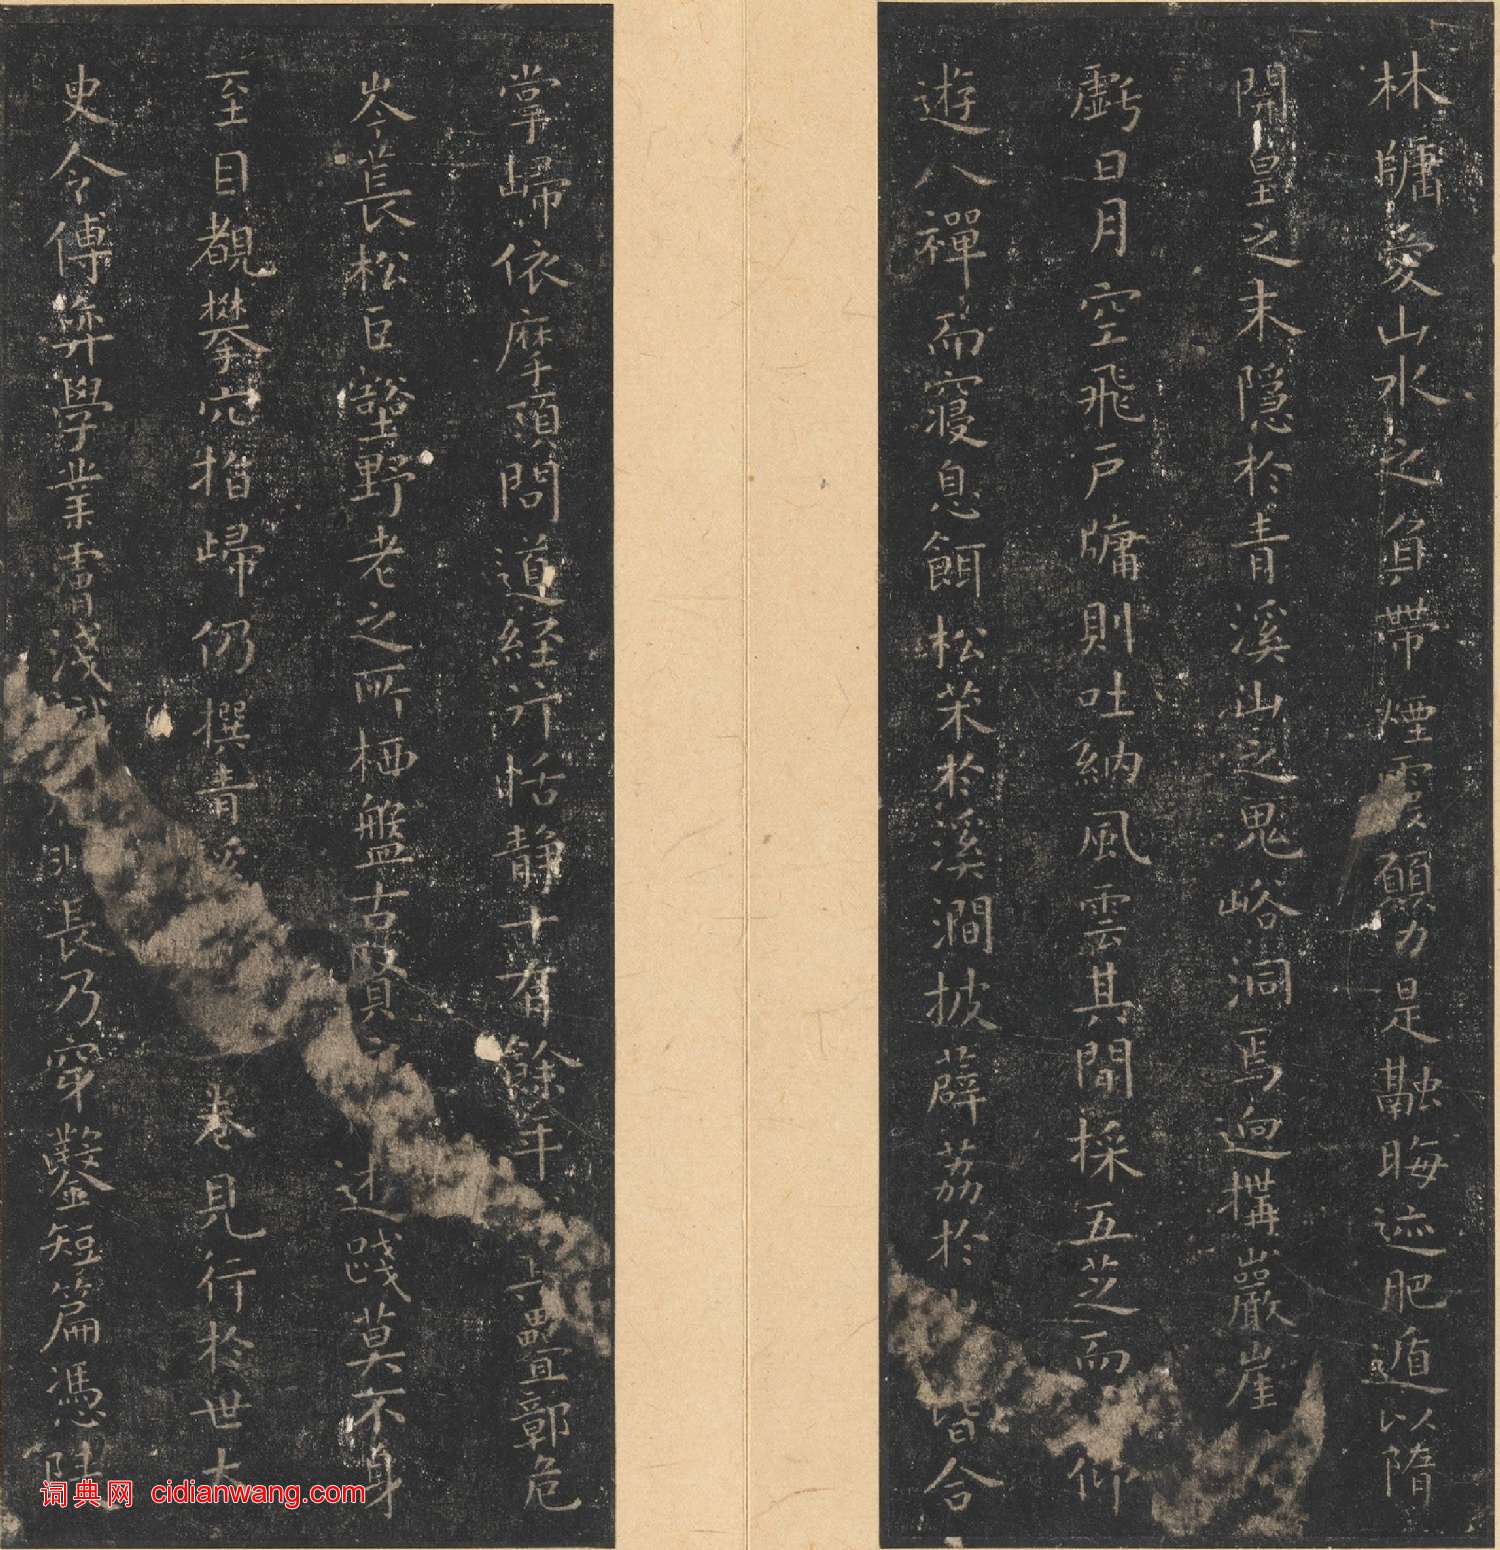 林牖愛山水之負帶煙霞顧力是韜晦迹肥遁以隋
開皇之末隱於青溪山之鬼峪洞焉迥構巖崖
虧日月空飛戶牖則吐納風雲其間採五芝而仰
遊八禪而寢息餌松茱於溪澗披薜荔於皆合
掌歸依摩頂問道經行恬静十有餘年疊鄣危
岑長松巨壑野老之所栖盤古賢之述踐莫不身
至目覩攀穴指歸仍撰青溪卷見行於世太
史令傅弈學業霄淺長乃穿鑿短篇馮陵
词典网 cidianwang.com